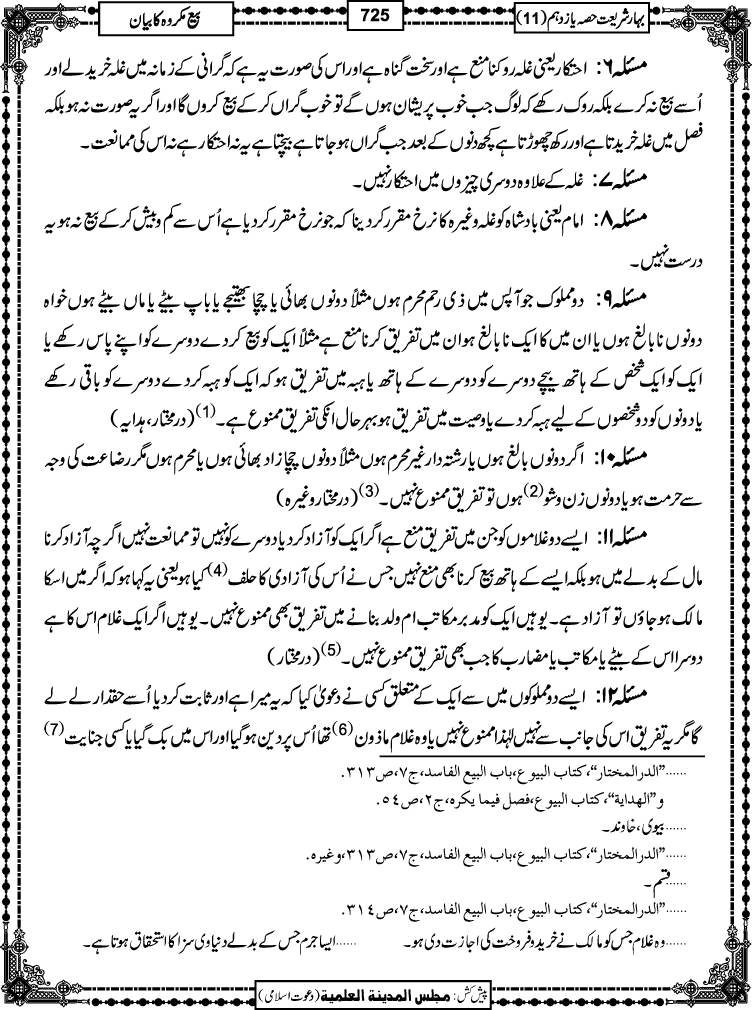 بہارِ شریعت حصہ یازدہم (11)
725
بیع مکروہ کا بیان
مسئلہ ۶: احتکار یعنی غلہ روکنا منع ہے اور سخت گناہ ہے اور اس کی صورت یہ ہے کہ گرانی کے زمانہ میں غلہ خرید لے اور
اُسے بیع نہ کرے بلکہ روک رکھے کہ لوگ جب خوب پریشان ہوں گے تو خوب گراں کر کے بیع کروں گا اور اگر یہ صورت نہ ہو بلکہ
فصل میں غلہ خریدتا ہے اور رکھ چھوڑتا ہے کچھ دنوں کے بعد جب گراں ہو جاتا ہے بیچتا ہے یہ نہ احتکار ہے نہ اس کی ممانعت۔
مسئلہ ۷: غلہ کے علاوہ دوسری چیزوں میں احتکار نہیں۔
مسئلہ ۸: امام یعنی بادشاہ کو غلہ وغیرہ کا نرخ مقرر کر دینا کہ جو نرخ مقرر کر دیا ہے اُس سے کم و بیش کر کے بیع نہ ہو یہ
درست نہیں۔
مسئلہ ۹: دو مملوک جو آپس میں ذی رحم محرم ہوں مثلاً دونوں بھائی یا چچا بھتیجے یا باپ بیٹے یا ماں بیٹے ہوں خواہ
دونوں نابالغ ہوں یا ان میں کا ایک نابالغ ہو ان میں تفریق کرنا منع ہے مثلاً ایک کو بیع کر دے دوسرے کو اپنے پاس رکھے یا
ایک کو ایک شخص کے ہاتھ بیچے دوسرے کو دوسرے کے ہاتھ یا ہبہ میں تفریق ہو کہ ایک کو ہبہ کر دے دوسرے کو باقی رکھے
یا دونوں کو دو شخصوں کے لیے ہبہ کر دے یا وصیت میں تفریق ہو بہر حال انکی تفریق ممنوع ہے۔(1) (درمختار، ہدایہ)
مسئلہ ۱۰: اگر دونوں بالغ ہوں یا رشتہ دار غیر محرم ہوں مثلاً دونوں چچازاد بھائی ہوں یا محرم ہوں مگر رضاعت کی وجہ
سے حرمت ہو یا دونوں زن و شو(2) ہوں تو تفریق ممنوع نہیں۔(3) (درمختار وغیرہ)
مسئلہ ۱۱: ایسے دو غلاموں کو جن میں تفریق منع ہے اگر ایک کو آزاد کر دیا دوسرے کو نہیں تو ممانعت نہیں اگرچہ آزاد کرنا
مال کے بدلے میں ہو بلکہ ایسے کے ہاتھ بیع کرنا بھی منع نہیں جس نے اُس کی آزادی کا حلف(4) کیا ہو یعنی یہ کہا ہو کہ اگر میں اسکا
مالک ہو جاؤں تو آزاد ہے۔ یوہیں ایک کو مدبر مکاتب ام ولد بنانے میں تفریق بھی ممنوع نہیں۔ یوہیں اگر ایک غلام اس کا ہے
دوسرا اس کے بیٹے یا مکاتب یا مضارب کا جب بھی تفریق ممنوع نہیں۔(5) (درمختار)
مسئلہ ۱۲: ایسے دو مملوکوں میں سے ایک کے متعلق کسی نے دعویٰ کیا کہ یہ میرا ہے اور ثابت کر دیا اُسے حقدار لے لے
گا مگر یہ تفریق اس کی جانب سے نہیں لہٰذا ممنوع نہیں یا وہ غلام ماذون(6) تھا اُس پر دین ہو گیا اور اس میں بک گیا یا کسی جنایت(7)
......"الدرالمختار"، کتاب البیوع، باب البیع الفاسد، ج۷، ص۳۱۳.
و"الھدایة"، کتاب البیوع، فصل فیما یکره، ج۲، ص۵٤.
......بیوی، خاوند۔
......"الدرالمختار"، کتاب البیوع، باب البیع الفاسد، ج۷، ص۳۱۳، وغیرہ.
......قسم۔
......"الدرالمختار"، کتاب البیوع، باب البیع الفاسد، ج۷، ص۳۱٤.
......وہ غلام جس کو مالک نے خرید و فروخت کی اجازت دی ہو۔ ......ایسا جرم جس کے بدلے دنیاوی سزا کا استحقاق ہوتا ہے۔
پیش کش: مجلس المدینة العلمیة (دعوت اسلامی)